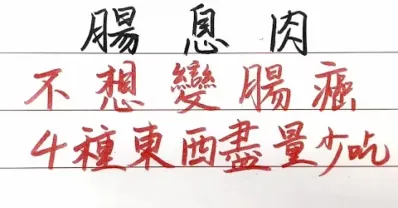 腸息肉
不想變腸癌
4種東西盡量少吃